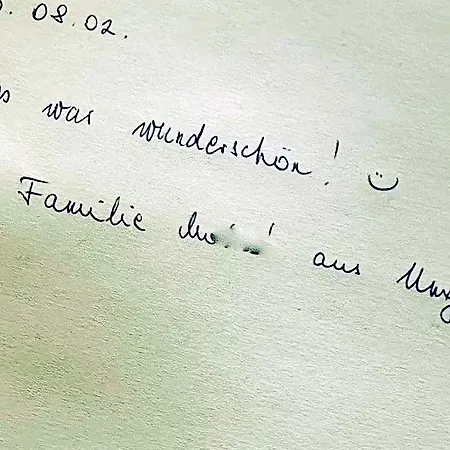 08.02.
war wunderschön! ☺
Familie aus